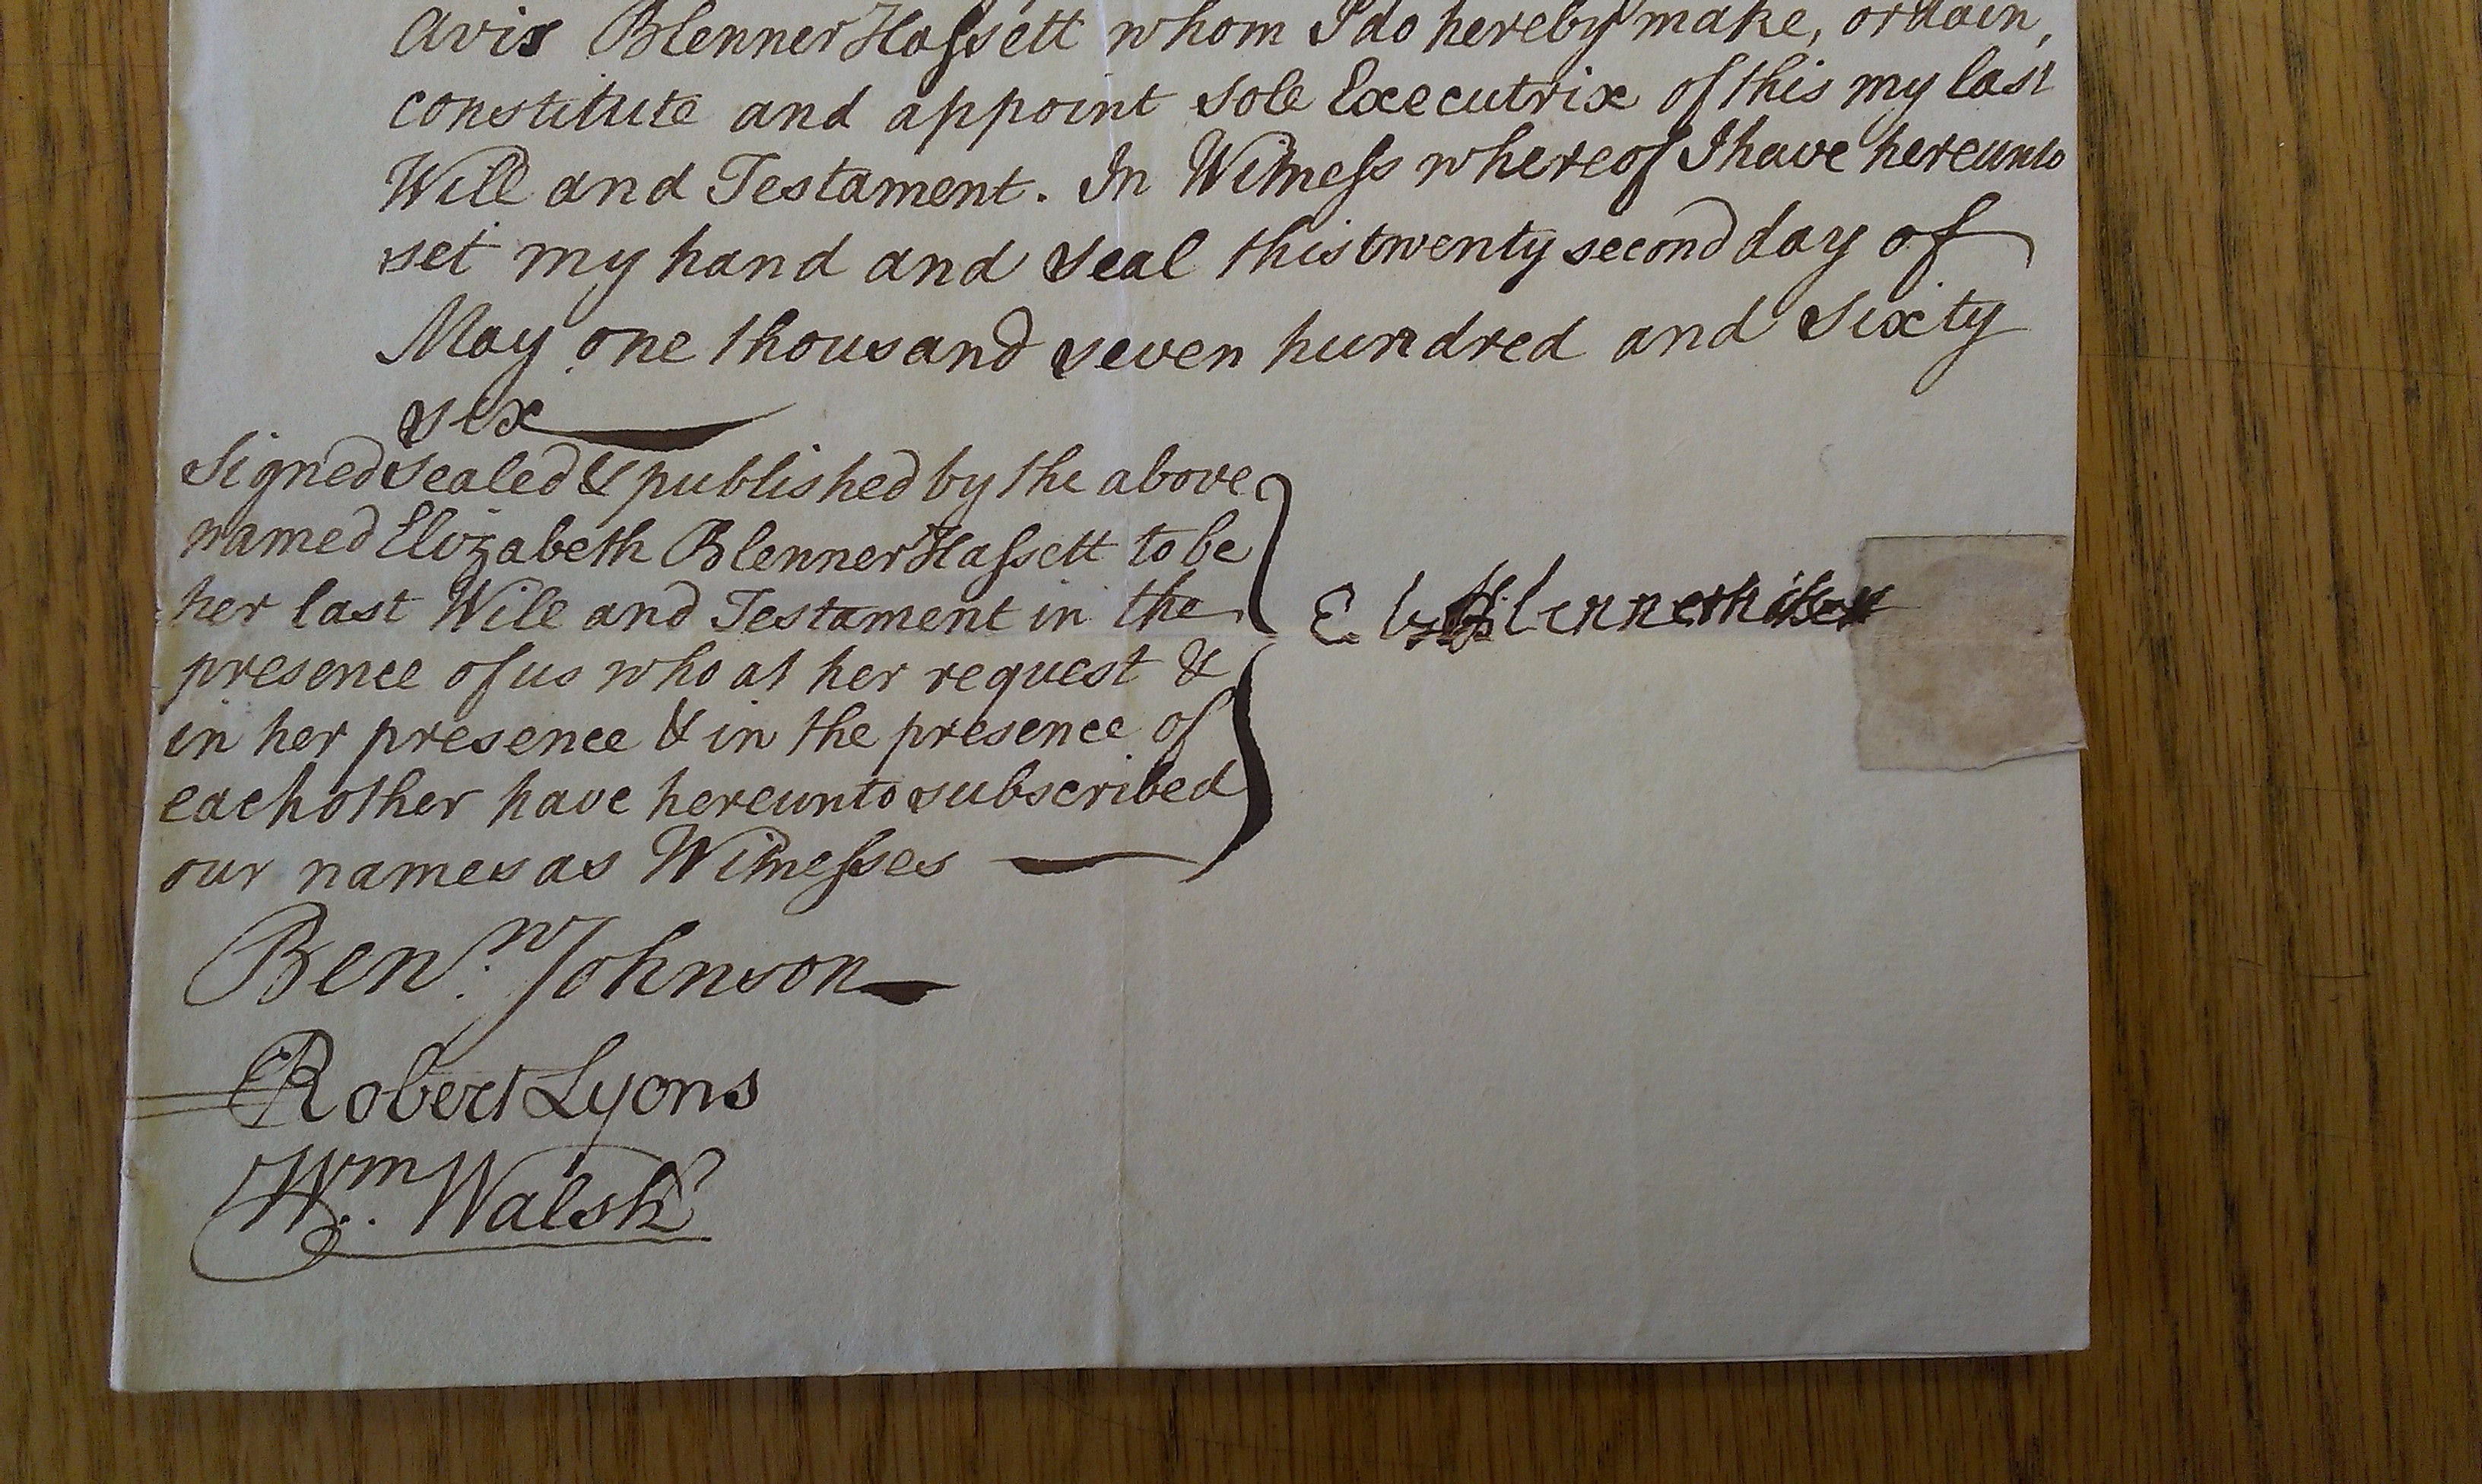 Avis BlennerHaſsett whom I do hereby make, ordain,
constitute and appoint sole Executrix of this my last
Will and Testament. In Witneſs whereof I have hereunto
set my hand and seal this twenty second day of
May one thousand seven hundred and sixty
six
Signed sealed & published by the above
named Elizabeth BlennerHaſsett to be
her last Will and Testament in the
presence of us who at her request &
in her presence & in the presence of
each other have hereunto subscribed
our names as Witneſses
Benn. Johnson
Robert Lyons
Wm. Walsh